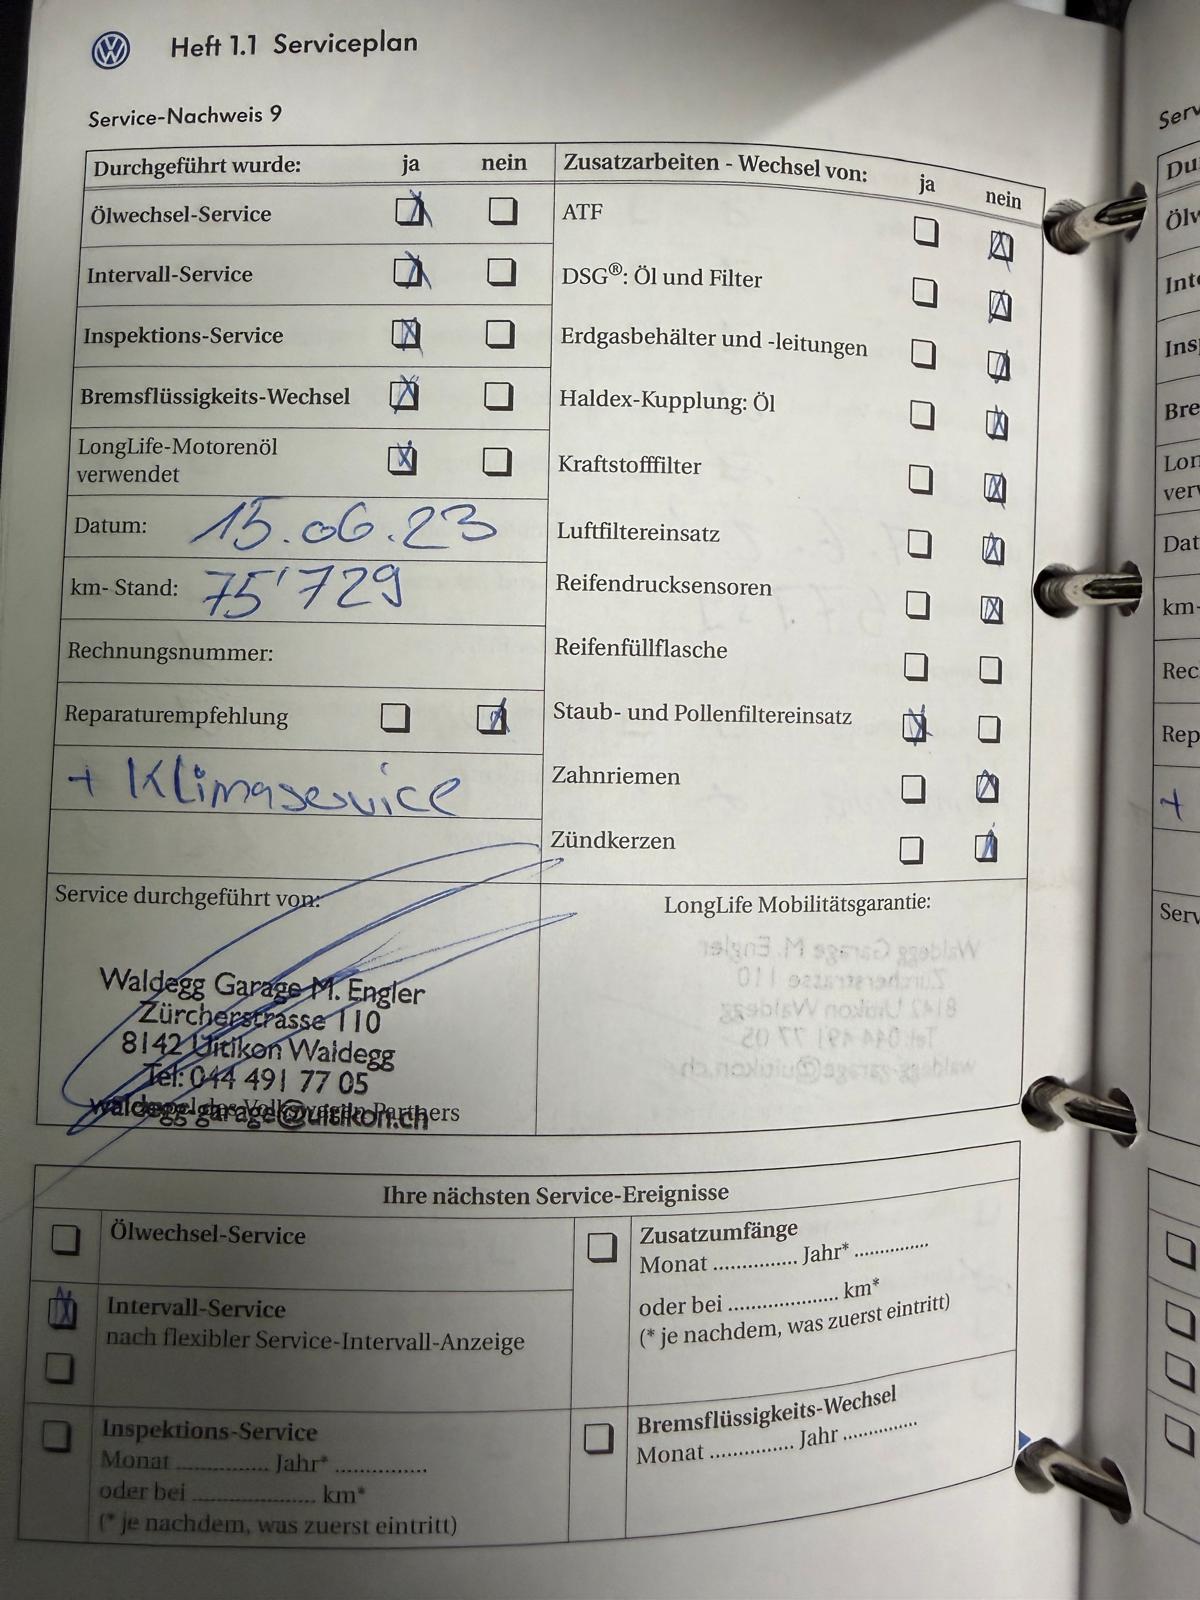 Heft 1.1 Serviceplan
Service-Nachweis 9
Durchgeführt wurde: ja nein
Ölwechsel-Service
Intervall-Service
Inspektions-Service
Bremsflüssigkeits-Wechsel
LongLife-Motorenöl
verwendet
Datum: 15.06.23
km- Stand: 75'729
Rechnungsnummer:
Reparaturempfehlung
+ Klimaservice
Zusatzarbeiten - Wechsel von: ja nein
ATF
DSG®: Öl und Filter
Erdgasbehälter und -leitungen
Haldex-Kupplung: Öl
Kraftstofffilter
Luftfiltereinsatz
Reifendrucksensoren
Reifenfüllflasche
Staub- und Pollenfiltereinsatz
Zahnriemen
Zündkerzen
Service durchgeführt von:
Waldegg Garage M. Engler
Zürcherstrasse 110
8142 Uitikon Waldegg
Tel: 044 491 77 05
waldegg-garage@uitikon.ch
des Volkswagen Partners
LongLife Mobilitätsgarantie:
Ihre nächsten Service-Ereignisse
Ölwechsel-Service
Intervall-Service
nach flexibler Service-Intervall-Anzeige
Inspektions-Service
Monat ............... Jahr* ...............
oder bei .................... km*
(* je nachdem, was zuerst eintritt)
Zusatzumfänge
Monat ............... Jahr* .............
oder bei ................... km*
(* je nachdem, was zuerst eintritt)
Bremsflüssigkeits-Wechsel
Monat ............... Jahr .............
Serv
Du
Ölw
Inte
Ins
Bre
Lon
verw
Dat
km-
Rec
Rep
+
Serv